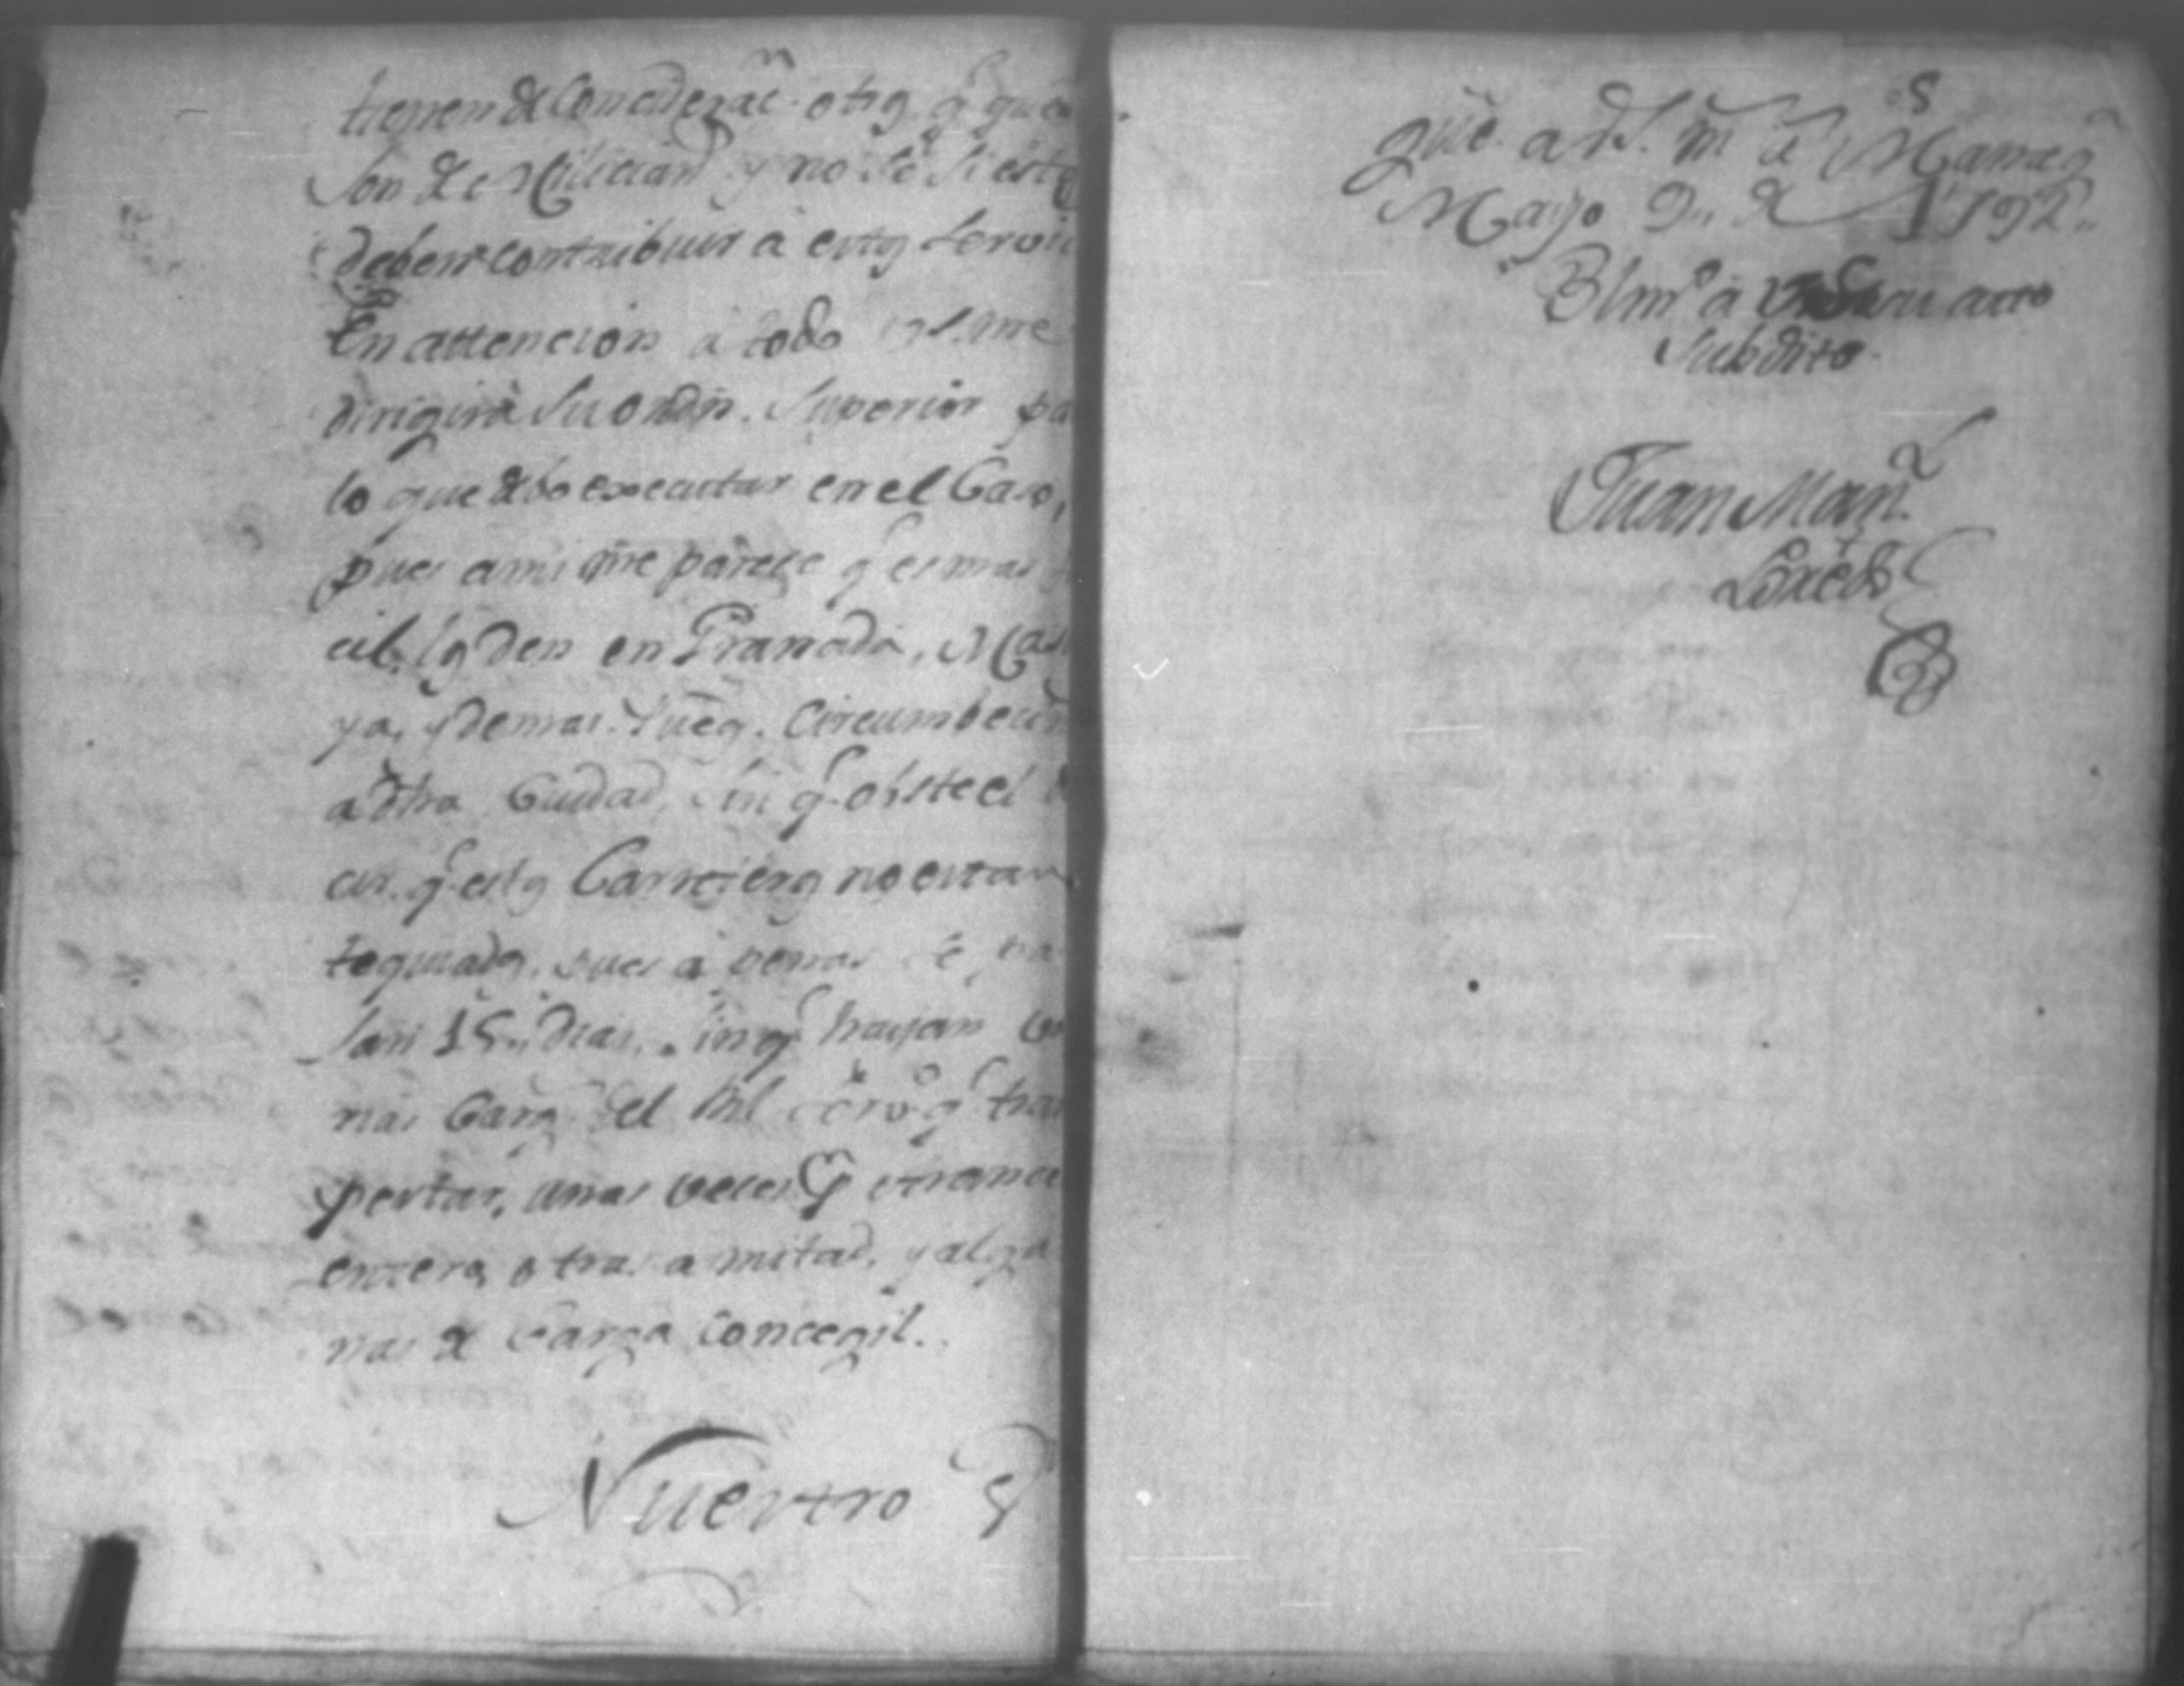 tienen de Concideraĉ. otrꝯ. q̃. que
Son de Milician y no sé si estꝯ
deben contribuir á estꝯ Servi
En attencion á todo V.S. me
dirigirá Su ordñ. Superior pa
lo que debo executar en el Caso,
pues ami me parece q̃ es mas
cil. lꝯ den en Granada, Mas
ya, y demas Pueꝯ. Circumbecin
a dha Ciudad, sin q̃. obste el
cir. q̃. estꝯ Carreterꝯ no estan
tequiadꝯ, pues á penas se pa
San 15,, dias, sin q̃ hayan
nas Cargꝯ del q̃ tras
portar, unas veces p̃ entram
enterꝯ otras a mitad, y algu
nas de Carga Concegil.
Nuestro S
gũe. a V.S. m̃. a.ˢ Manaꝯ
Mayo 9,, de 1792,,
Blmº á V.S. su atto
Subdito.
Juan Man.ˡ
Loredo